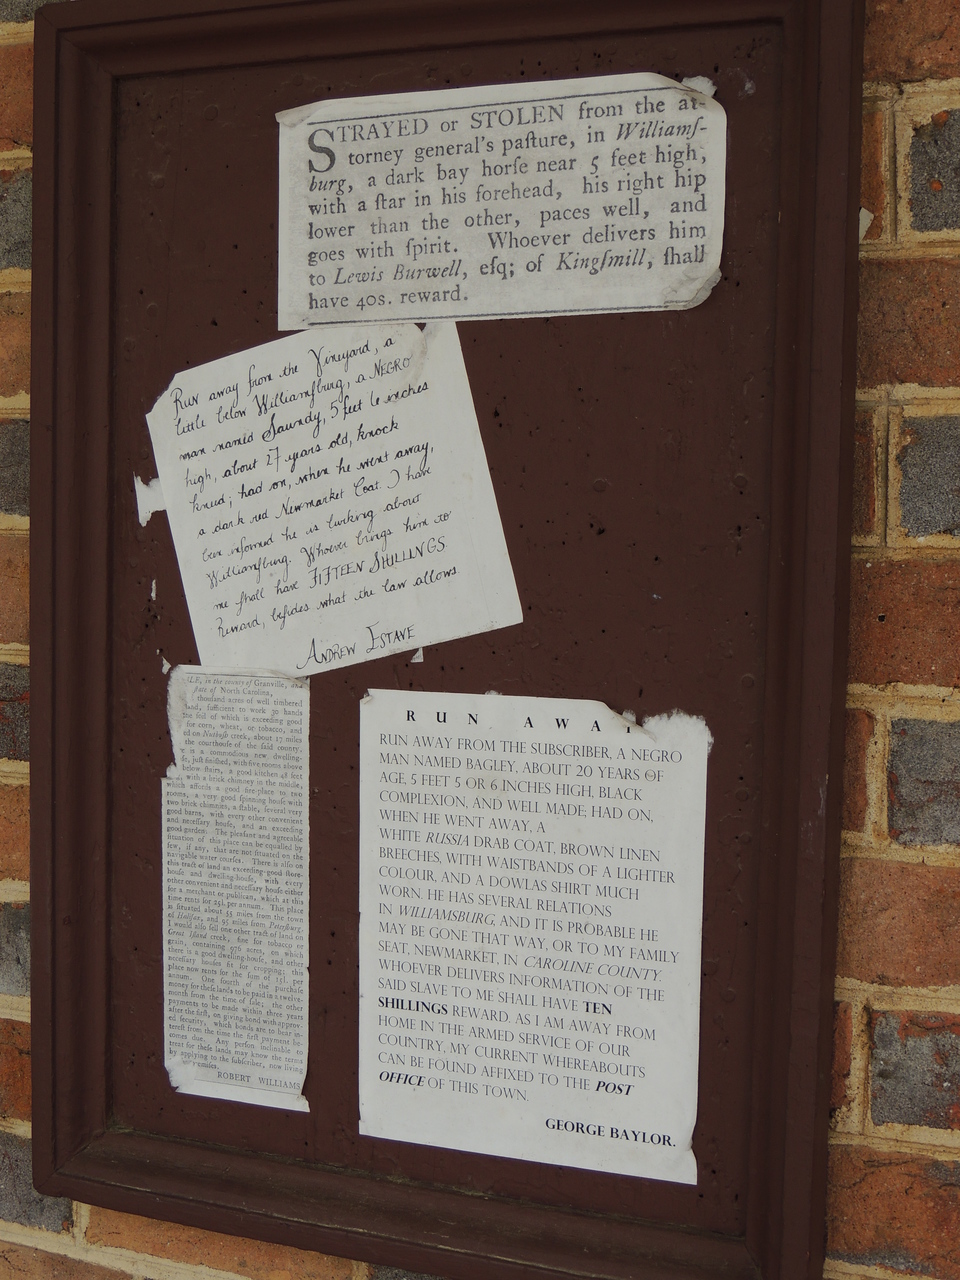 STRAYED or STOLEN from the at-
torney general's paſture, in Williamſ-
burg, a dark bay horſe near 5 feet high,
with a ſtar in his forehead, his right hip
lower than the other, paces well, and
goes with ſpirit. Whoever delivers him
to Lewis Burwell, eſq; of Kingſmill, ſhall
have 40s. reward.
Run away from the Vineyard, a
little below Williamſburg, a NEGRO
man named Saundy, 5 feet 6 inches
high, about 27 years old, knock
kneed; had on, when he went away,
a dark red Newmarket Coat. I have
been informed he is lurking about
Williamſburg. Whoever brings him to
me ſhall have FIFTEEN SHILLINGS
Reward, beſides what the law allows.
ANDREW ESTAVE
LE, in the county of Granville, and
ſtate of North Carolina,
thouſand acres of well timbered
land, ſufficient to work 30 hands
the ſoil of which is exceeding good
for corn, wheat, or tobacco, and
ed on Nutbuſh creek, about 17 miles
the courthouſe of the ſaid county.
e is a commodious new dwelling-
ſe, juſt finiſhed, with five rooms above
below ſtairs, a good kitchen 48 feet
with a brick chimney in the middle,
which affords a good fire-place to two
rooms, a very good ſpinning houſe with
two brick chimnies, a ſtable, ſeveral very
good barns, with every other convenient
and neceſſary houſe, and an exceeding
good garden. The pleaſant and agreeable
ſituation of this place can be equalled by
few, if any, that are not ſituated on the
navigable water courſes. There is alſo on
this tract of land an exceeding good ſtore-
houſe and dwelling-houſe, with every
other convenient and neceſſary houſe either
for a merchant or publican, which at this
time rents for 25l. per annum. This place
is ſituated about 55 miles from the town
of Halifax, and 95 miles from Peterſburg.
I would alſo ſell one other tract of land on
Great Iſland creek, fine for tobacco or
grain, containing 976 acres, on which
there is a good dwelling-houſe, and other
neceſſary houſes fit for cropping; this
place now rents for the ſum of 25l. per
annum. One fourth of the purchaſe
money for theſe lands to be paid in a twelve-
month from the time of ſale; the other
payments to be made within three years
after the firſt, on giving bond with approv-
ed ſecurity, which bonds are to bear in-
tereſt from the time the firſt payment be-
comes due. Any perſon inclinable to
treat for theſe lands may know the terms
by applying to the ſubſcriber, now living
ROBERT WILLIAMS
RUN AWAY
RUN AWAY FROM THE SUBSCRIBER, A NEGRO
MAN NAMED BAGLEY, ABOUT 20 YEARS OF
AGE, 5 FEET 5 OR 6 INCHES HIGH, BLACK
COMPLEXION, AND WELL MADE; HAD ON,
WHEN HE WENT AWAY, A
WHITE RUSSIA DRAB COAT, BROWN LINEN
BREECHES, WITH WAISTBANDS OF A LIGHTER
COLOUR, AND A DOWLAS SHIRT MUCH
WORN. HE HAS SEVERAL RELATIONS
IN WILLIAMSBURG, AND IT IS PROBABLE HE
MAY BE GONE THAT WAY, OR TO MY FAMILY
SEAT, NEWMARKET, IN CAROLINE COUNTY.
WHOEVER DELIVERS INFORMATION OF THE
SAID SLAVE TO ME SHALL HAVE TEN
SHILLINGS REWARD. AS I AM AWAY FROM
HOME IN THE ARMED SERVICE OF OUR
COUNTRY, MY CURRENT WHEREABOUTS
CAN BE FOUND AFFIXED TO THE POST
OFFICE OF THIS TOWN.
GEORGE BAYLOR.